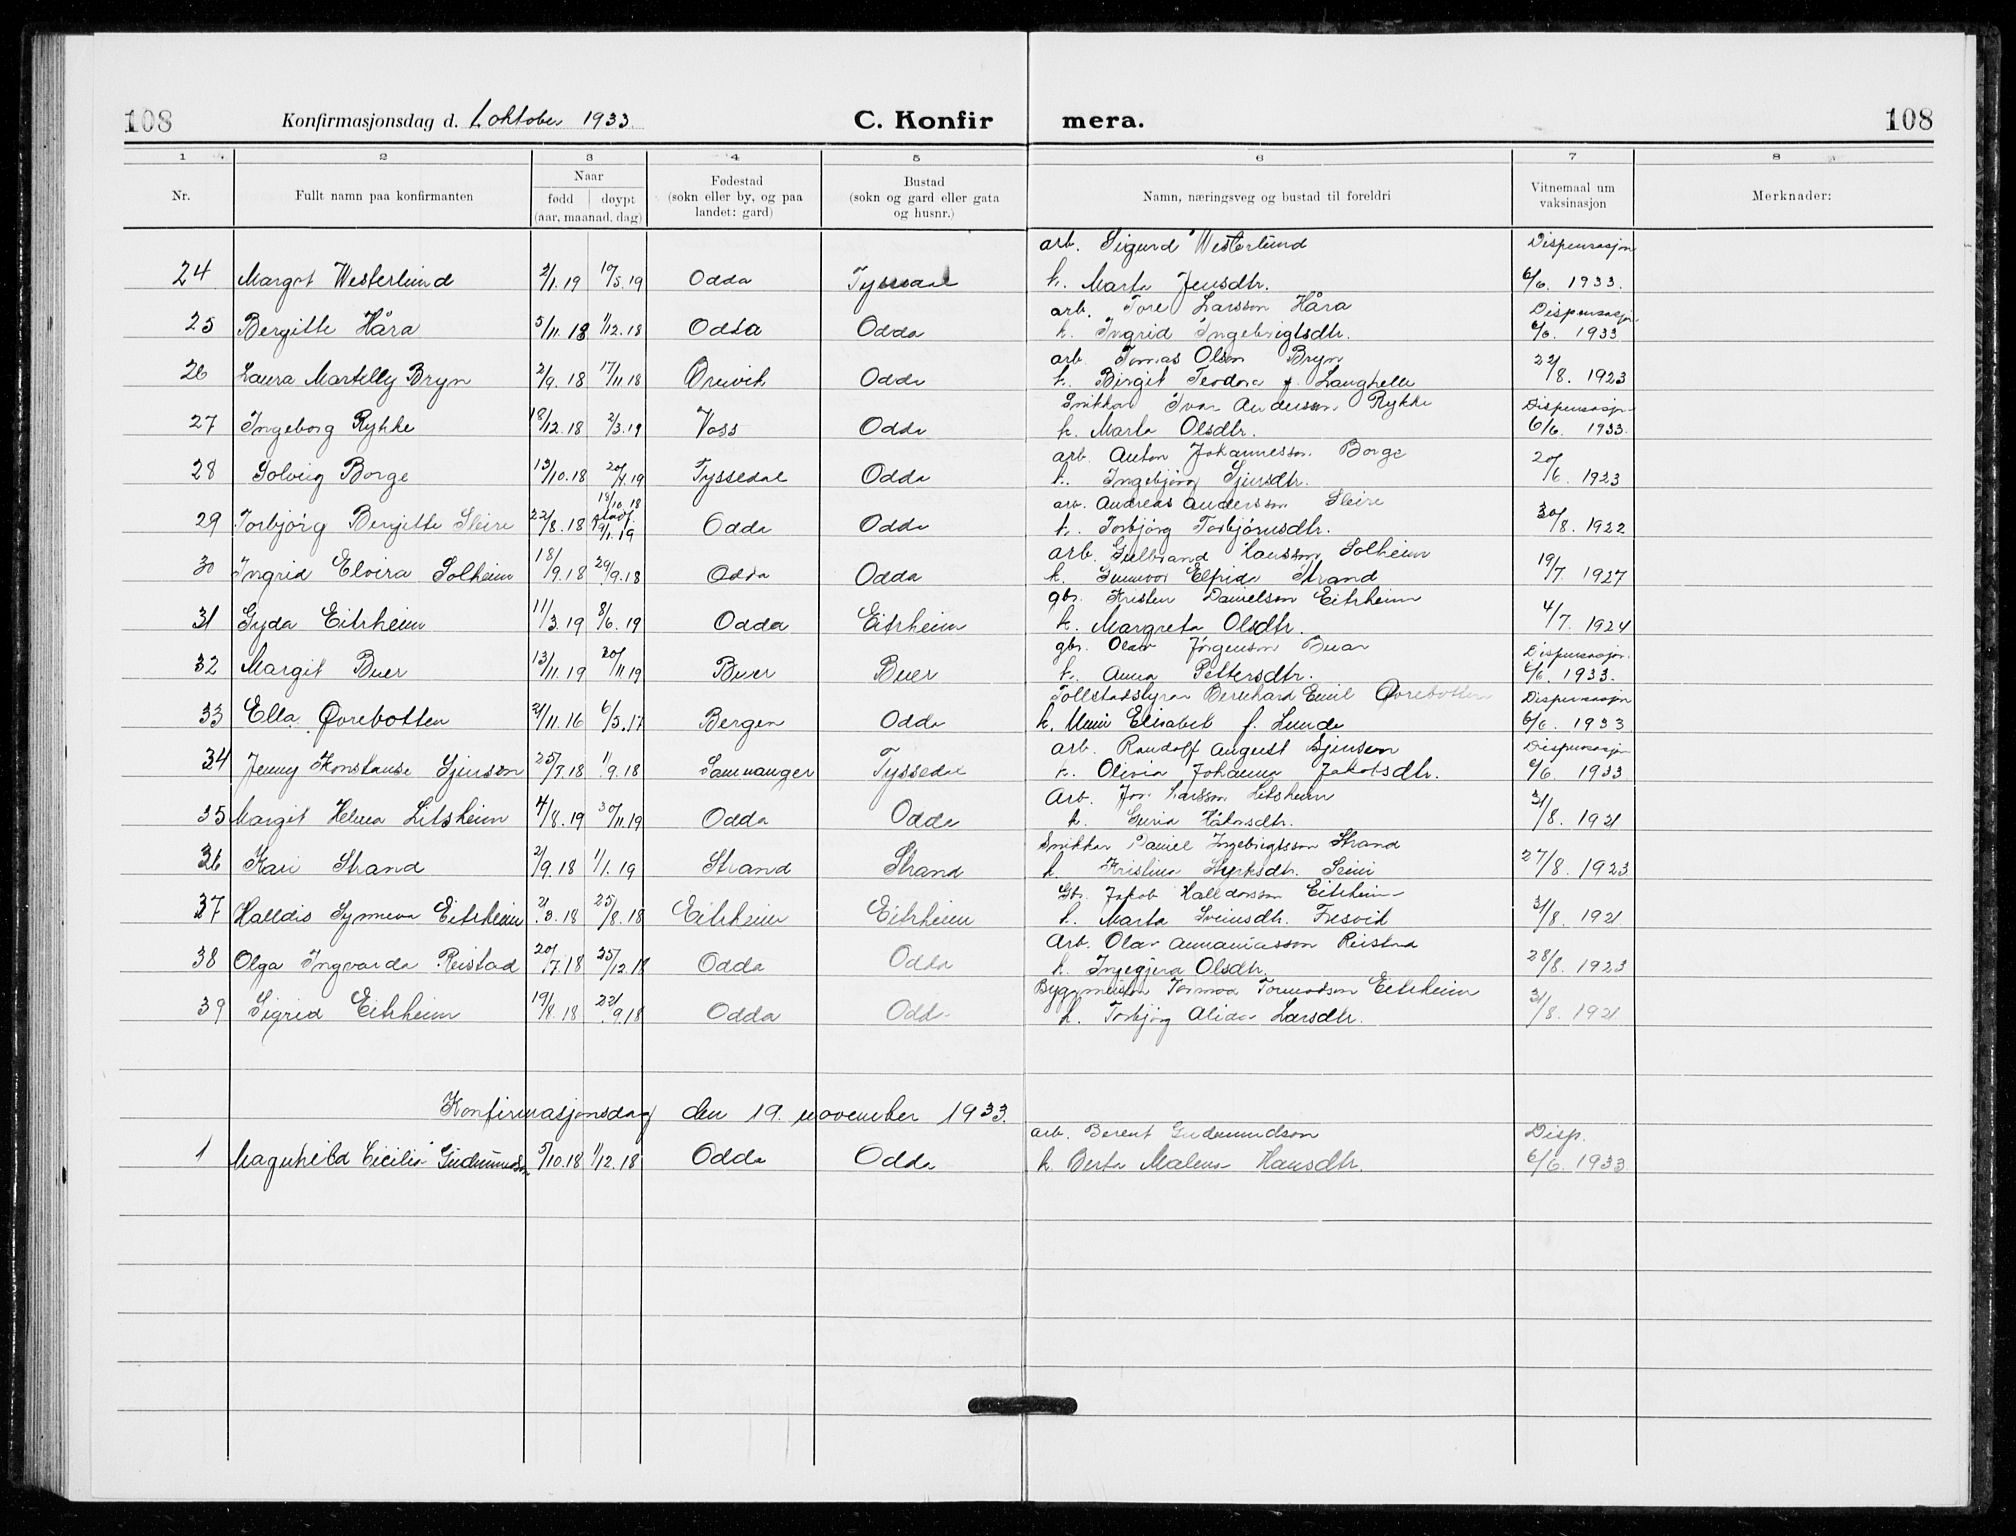 108 Konfirmasjonsdag d. 1 oktober 1933 C. Konfir mera. 108
1 2 3 4 5 6 7 8
Nr. Fullt namn paa konfirmanten Naar fødd døypt (aar, maanad, dag) Fødestad (sokn eller by, og paa landet: gard) Bustad (sokn og gard eller gata og husnr.) Namn, næringsveg og bustad til foreldri Vitnemaal um vaksinasjon Merknader:
arb. Sigurd Westerlund Dispensasjon
24 Margot Westerlund 2/1.19 10/5.19 Odda Tyssedal k. Marta Jensdtr. 6/6. 1933.
arb. Tore Larsson Håra Dispensasjon
25 Bergitte Håra 5/11.18 1/12.18 Odda Odda k. Ingrid Ingebrigtsdtr. 6/6. 1933
arb. Tomas Olsen Bryn
26 Laura Martelly Bryn 2/9.18 17/11.18 Odda k. Birgit Teodora f. Langhelle 22/8. 1923
Snikkar Ivar Anderson Rykke Dispensasjon
27 Ingeborg Rykke 18/12.18 2/3.19 Voss Odda k. Marta Olsdtr. 6/6. 1933.
arb. Anton Johannesson Borge
28 Solveig Borge 13/10.18 20/4.19 Tyssedal Odda k. Ingebjørg Sjursdtr. 20/6. 1923
arb. Andreas Andersson Sleire
29 Torbjørg Bergitte Sleire 22/8.18 18/10.18 19/1.19 Odda Odda k. Torbjørg Torbjørnsdtr. 30/8. 1922
arb. Gulbrand Hansson Solheim
30 Ingrid Elvira Solheim 18/9.18 29/9.18 Odda Odda k. Gunvor Elfrida Strand 19/7. 1927
gbr. Kristen Danielson Eitrheim
31 Gyda Eitrheim 11/3.19 8/6.19 Odda Eitrheim k. Margreta Olsdtr. 4/7. 1924
gbr. Olav Jørgenson Buar Dispensasjon.
32 Margit Buer 13/11.19 30/11.19 Buer Buer k. Anna Pettersdtr. 6/6. 1933.
Tollstadstyrar Bernhard Emil Øvrebotten Dispensasjon
33 Ella Øvrebotten 21/11.16 6/5.17 Bergen Odda k. Elisabet f. Lunde 6/6. 1933
arb. Randolf August Sjursen Dispensasjon
34 Jenny Konstanse Sjurson 25/7.18 1/9.18 Samnanger Tyssedal k. Olivia Johanna Jakobsdtr. 6/6. 1933
Arb. Jon Larsson Litsheim
35 Margit Helena Litsheim 4/8.19 30/11.19 Odda Odda k. Guria Håkonsdtr. 31/8. 1921
Snikkar Daniel Ingebrigtsson Strand
36 Kari Strand 2/9.18 1/1.19 Strand Strand k. Kristina Styrksdtr. Seim 27/8. 1923
Gbr. Jakob Halldorsson Eitrheim
37 Halldis Synneva Eitrheim 21/3.18 25/8.18 Eitrheim Eitrheim k. Marta Sveinsdtr. Fresvik 31/8. 1921
Arb. Olav Annaniasson Reistad
38 Olga Ingvarda Reistad 20/7.18 25/12.18 Odda Odda k. Ingegjerd Olsdtr. 28/8. 1923
Byggmeister Tormod Tormodson Eitrheim
39 Sigrid Eitrheim 19/8.18 22/9.18 Odda Odda k. Torbjørg Alida Larsdtr. 31/8. 1921
Konfirmasjonsdag den 19. november 1933.
arb. Berent Gudmundson Disp.
1 Magnhild Cicilia Gudmundson 5/10.18 1/12.18 Odda Odda k. Berta Malena Hansdtr. 6/6. 1933